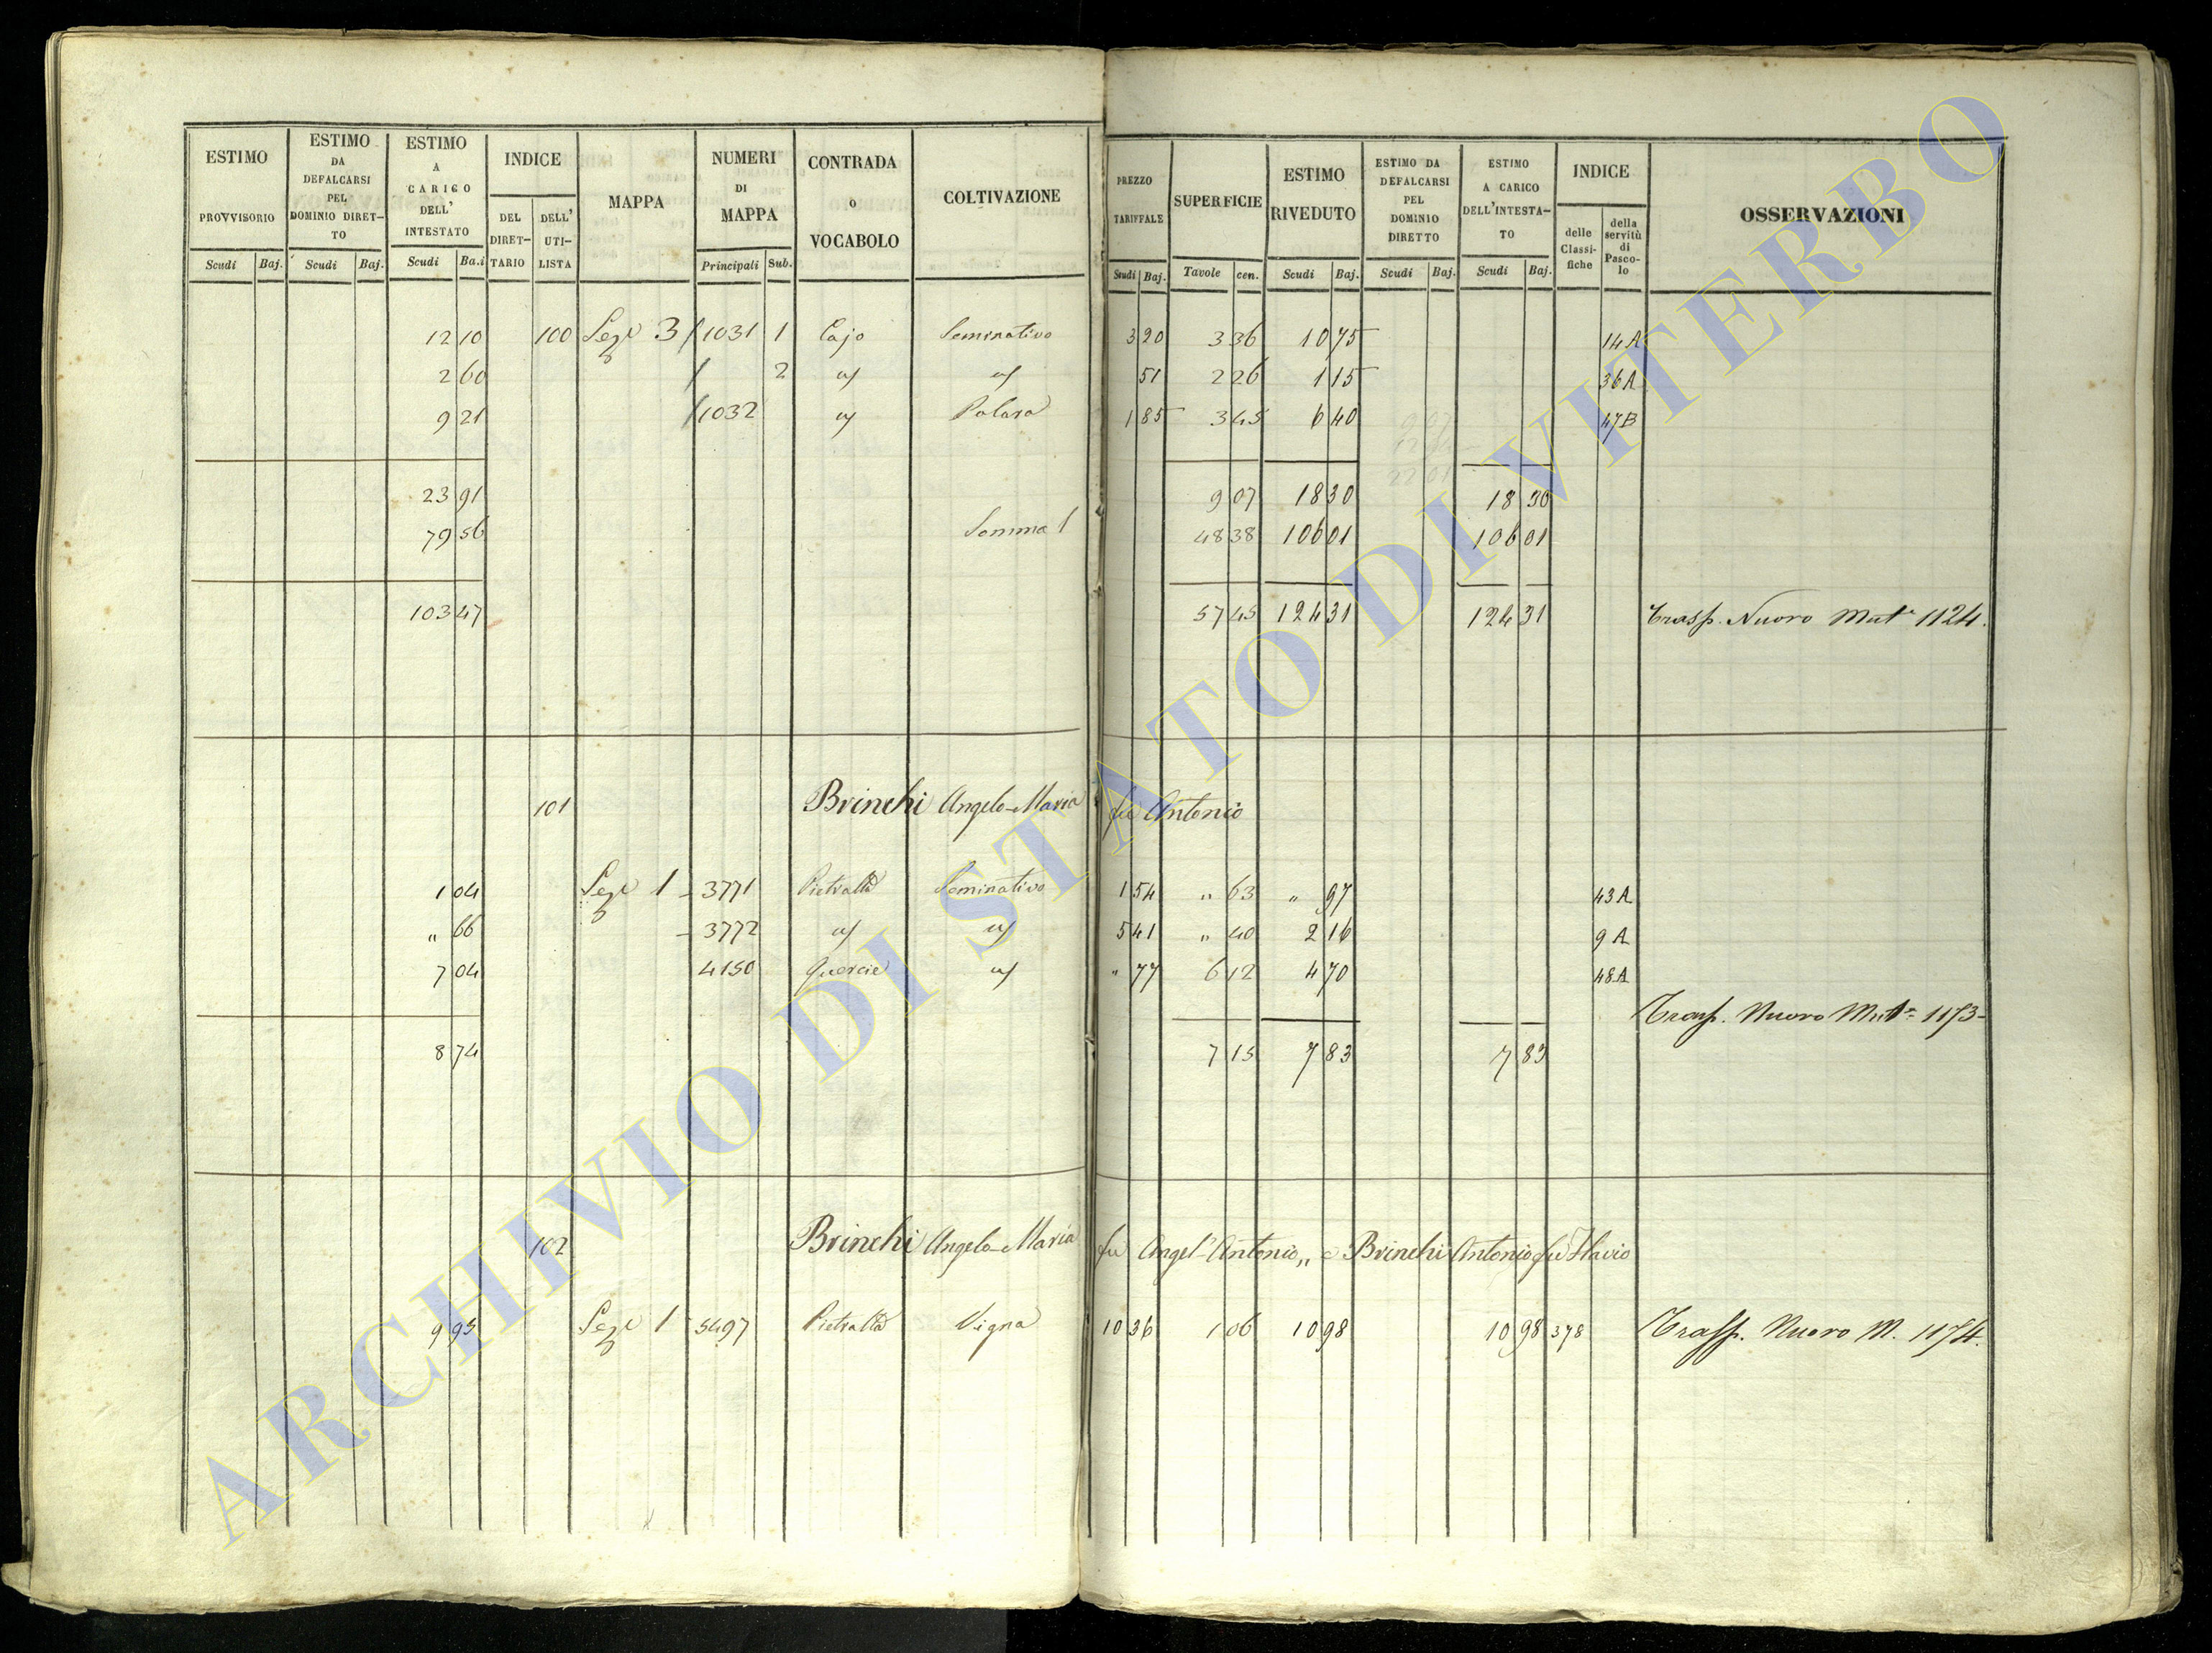 ESTIMO PROVVISORIO Scudi Baj.
ESTIMO DA DEFALCARSI PEL DOMINIO DIRET- TO Scudi Baj.
ESTIMO A CARICO DELL' INTESTATO Scudi Ba.i
INDICE DEL DIRET- TARIO DELL' UTI- LISTA
MAPPA
NUMERI DI MAPPA Principali Sub.
CONTRADA o VOCABOLO
COLTIVAZIONE
PREZZO TARIFFALE Scudi Baj.
SUPERFICIE Tavole cen.
ESTIMO RIVEDUTO Scudi Baj.
ESTIMO DA DEFALCARSI PEL DOMINIO DIRETTO Scudi Baj.
ESTIMO A CARICO DELL'INTESTA- TO Scudi Baj.
INDICE delle Classi- fiche della servitù di Pasco- lo
OSSERVAZIONI
12 10 100 Seze 3 1031 1 Cajo Seminativo 3 20 3 36 10 75 14A
2 60 2 51 2 26 1 15 36A
9 21 1032 1 85 3 45 6 40 47B
23 91 9 07 18 30 18 30
79 56 Somma 1 48 38 106 01 106 01
103 47 57 45 124 31 124 31 Trasp. Nuovo Mat. 1124.
101 Brinchi Angelo-Maria fu Antonio
1 04 Seze 1 3771 Pietralta Seminativo 1 54 " 63 " 97 43A
" 66 3772 5 41 " 40 2 16 9A
7 04 4150 Quercie " 77 6 12 4 70 48A
Trasp. Nuovo Mat. 1173
8 74 7 15 7 83 7 83
102 Brinchi Angelo-Maria fu Angel'Antonio,, e Brinchi Antonio fu Flavio
9 95 Seze 1 5497 Pietralta Vigna 10 36 1 06 10 98 10 98 378 Trasp. Nuovo M. 1174.
ARCHIVIO DI STATO DI VITERBO